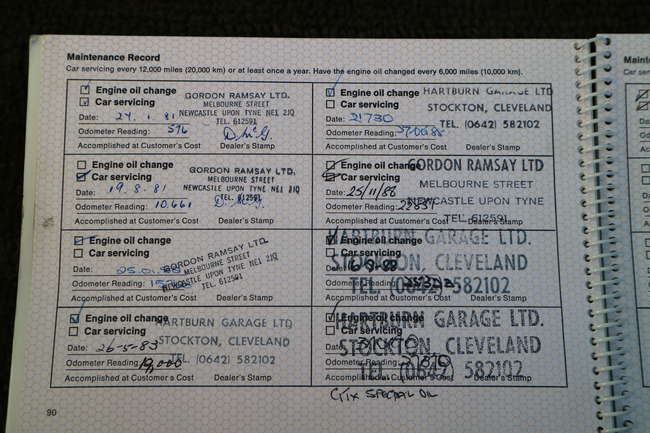 Maintenance Record
Car servicing every 12,000 miles (20,000 km) or at least once a year. Have the engine oil changed every 6,000 miles (10,000 km).
Engine oil change
Car servicing
GORDON RAMSAY LTD.
MELBOURNE STREET
NEWCASTLE UPON TYNE NE1 2JQ
TEL. 612591
Date: 24. 1. 81
Odometer Reading: 596
Accomplished at Customer's Cost Dealer's Stamp
Engine oil change
Car servicing
GORDON RAMSAY LTD.
MELBOURNE STREET
NEWCASTLE UPON TYNE NE1 2JQ
TEL. 612591
Date: 19. 8. 81
Odometer Reading: 10,661
Accomplished at Customer's Cost Dealer's Stamp
Engine oil change
Car servicing
GORDON RAMSAY LTD.
MELBOURNE STREET
NEWCASTLE UPON TYNE NE1 2JQ
TEL. 612591
Date: 25.01.
Odometer Reading:
Accomplished at Customer's Cost Dealer's Stamp
Engine oil change
Car servicing
HARTBURN GARAGE LTD
STOCKTON, CLEVELAND
TEL. (0642) 582102
Date: 26-5-83
Odometer Reading: 19,000
Accomplished at Customer's Cost Dealer's Stamp
90
Engine oil change
Car servicing
HARTBURN GARAGE LTD
STOCKTON, CLEVELAND
TEL. (0642) 582102
Date: 21730
Odometer Reading:
Accomplished at Customer's Cost Dealer's Stamp
Engine oil change
Car servicing
GORDON RAMSAY LTD
MELBOURNE STREET
NEWCASTLE UPON TYNE
TEL. 612591
Date: 25/11/86
Odometer Reading:
Accomplished at Customer's Cost Dealer's Stamp
Engine oil change
Car servicing
HARTBURN GARAGE LTD.
STOCKTON, CLEVELAND
TEL. (0642) 582102
Date:
Odometer Reading:
Accomplished at Customer's Cost Dealer's Stamp
Engine oil change
Car servicing
HARTBURN GARAGE LTD.
STOCKTON, CLEVELAND
TEL. (0642) 582102
Date:
Odometer Reading:
Accomplished at Customer's Cost Dealer's Stamp
SPECIAL OIL
Maintenan
Car ser